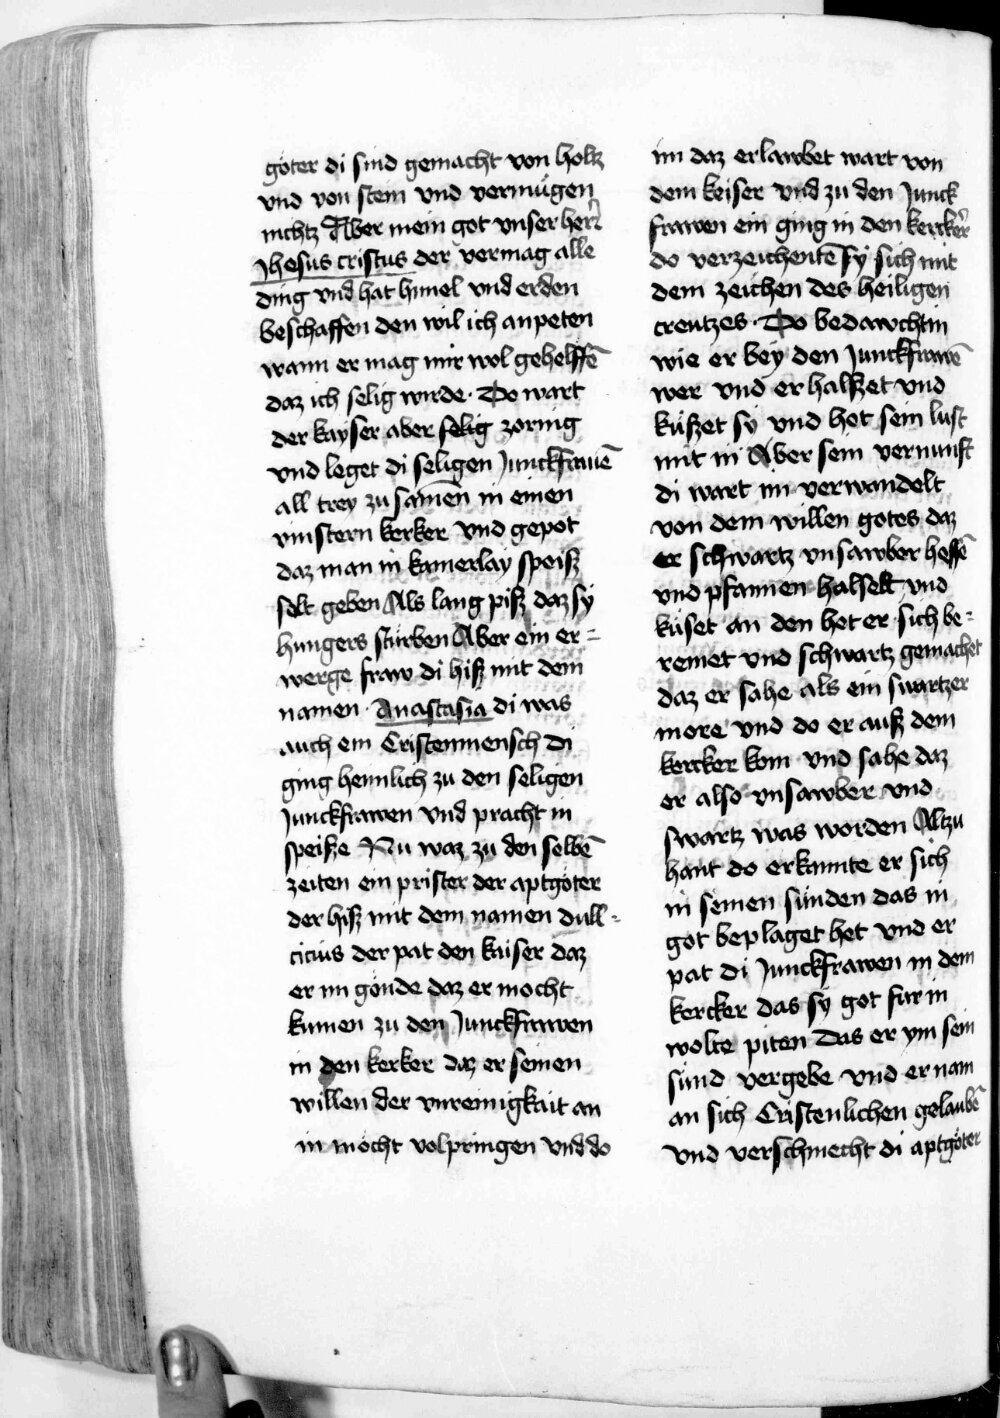 göter di sind gemacht von holtz
vnd von stein vnd vermügen
nichtz Aber mein got vnser herr̄
Jhesus cristus der vermag alle
ding vnd hat himel vnd erden
beschaffen den wil ich anpeten
wann er mag mir wol gehelffē
daz ich selig wirde · Do wart
der kayser aber selig zornig
vnd leget di seligen Junckfrauē
all trey zu samen in einen
vinstern kerker vnd gepot
daz man in kainerlay speisz
solt geben Als lang pisz daz sy
hungers stürben Aber ein er=
werge fraw di hisz mit dem
namen · Anastasia di was
auch ein Cristenmensch Di
ging heimlich zu den seligen
Junckfrawen vnd pracht in
speisze Nu waz zu den selbē
zeiten ein prister der aptgöter
der hisz mit dem namen dull=
cicius der pat den kaiser daz
er im gönde daz er mocht
kumen zu den Junckfrawen
in den kerker daz er seinen
willen der vnreinigkait an
in möcht volpringen vnd do
im daz erlawbet wart von
dem keiser vnd zu den Junck
frawen ein ging in den kercker
do verzeichentē sy sich mit
dem zeichen des heiligen
creutzes · Do bedawchtin
wie er bey den Junckfrawē
wer vnd er halszet vnd
küszet sy vnd het sein lust
mit in Aber sein vernunft
di wart im verwandelt
von dem willen gotes daz
er schwartz vnsawber heffē
vnd pfannen halselt vnd
küset an den het er sich be=
remet vnd schwartz gemachet
daz er sahe als ein swartzer
more vnd do er ausz dem
kercker kom vnd sahe daz
er also vnsawber vnd
swartz was worden Altzu
hant do erkannte er sich
in seinen sünden das in
got beplaget het vnd er
pat di Junckfrawen in dem
kercker das sy got für in
wolte piten Das er ym sein
sünd vergebe vnd er nam
an sich Cristenlichen gelaubē
vnd verschmecht di aptgöter